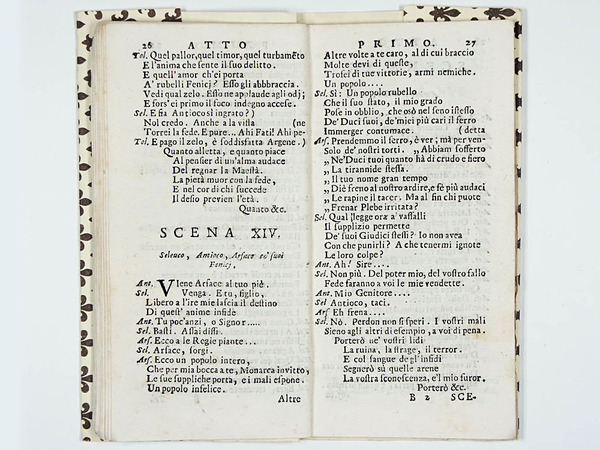 26 ATTO
Tol. Quel pallor, quel timor, quel turbamẽto
E l'anima che sente il suo delitto.
E quell' amor ch'ei porta
A' rubelli Fenicj? Esso gli abbbraccia.
Vedi qual zelo. Esso ne applaude agli odj;
E fors'ei primo il fuoco indegno accese.
Sel. E fia Antioco sì ingrato? )
Nol credo. Anche a la vista (ne
Torrei la fede. E pure... Ahi Fati! Ahi pe-
Tol. E pago il zelo, è soddisfatta Argene. )
Quanto alletta, e quanto piace
Al pensier di un'alma audace
Del regnar la Maestà.
La pietà muor con la fede,
E nel cor di chi succede
Il desio previen l'età.
Quanto &c.
SCENA XIV.
Seleuco, Antioco, Arsace co' suoi
Fenicj.
Ant. VIene Arsace al tuo piè.
Sel. Venga. E tu, figlio,
Libero a l'ire mie lascia il destino
Di quest' anime infide
Ant. Tu poc'anzi, o Signor.....
Sel. Basti. Assai dissi.
Ars. Ecco a le Regie piante...
Sel. Arsace, sorgi.
Ars. Ecco un popolo intero,
Che per mia bocca a te, Monarca invitto,
Le sue suppliche porta, e i mali espone.
Un popolo infelice.
Altre
PRIMO. 27
Altre volte a te caro, al di cui braccio
Molte devi di queste,
Trofei di tue vittorie, armi nemiche.
Un popolo....
Sel. Sì: Un popolo rubello
Che il suo stato, il mio grado
Pose in obblio, che osò nel seno istesso
De' Duci suoi, de'miei più cari il ferro
Immerger contumace. (detta
Ars. Prendemmo il ferro, è ver; ma per ven-
Solo de' nostri torti. „ Abbiam sofferto
„ Ne'Duci tuoi quanto hà di crudo e fiero
„ La tirannide stessa.
„ Il tuo nome gran tempo
„ Diè freno al nostro ardire, e fè più audaci
„ Le rapine il tacer. Ma al fin chi puote
„ Frenar Plebe irritata?
Sel. Qual legge ora a' vassalli
Il supplizio permette
De' suoi Giudici stessi? Io non avea
Con che punirli? A che tenermi ignote
Le loro colpe?
Ant. Ah! Sire....
Sel. Non più. Del poter mio, del vostro fallo
Fede faranno a voi le mie vendette.
Ant. Mio Genitore....
Sel Antioco, taci.
Ars Eh frena....
Sel. Nò. Perdon non si speri. I vostri mali
Sieno agli altri di esempio, a voi di pena.
Porterò ne' vostri lidi
La ruina, la strage, il terror.
E col sangue degl'infidi
Segnerò sù quelle arene
La vostra sconescenza, e'l mio furor.
Porterò &c.
B 2 SCE-